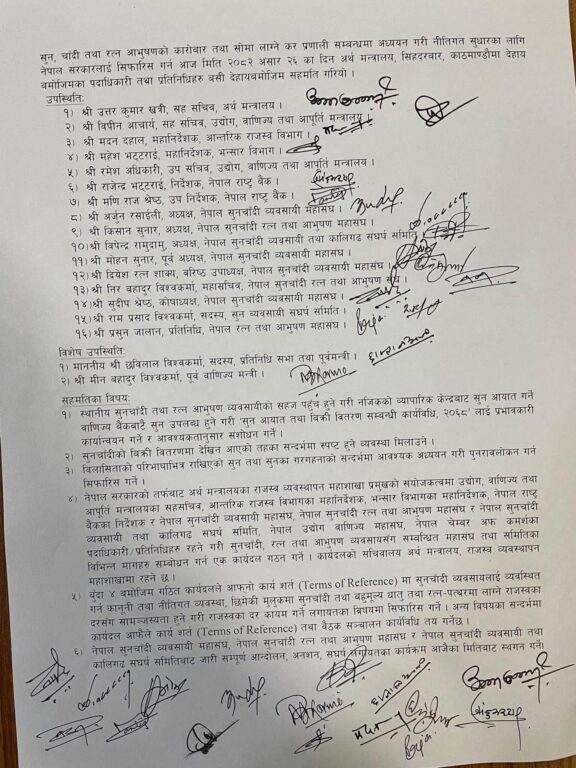 सुन, चांदी तथा रत्न आभुषणको कारोबार तथा सोमा लाग्ने कर प्रणाली सम्बन्धमा अध्ययन गरी नीतिगत सुधारका लागि
नेपाल सरकारलाई सिफारिस गर्न आज मिति २०८२ असार २६ का दिन अर्थ मन्त्रालय, सिंहदरबार, काठमाण्डौमा देहाय
बमोजिमका पदाधिकारी तथा प्रतिनिधिहरु बसी देहायबमोजिम सहमति गरियो ।
उपस्थिति:
१) श्री उत्तर कुमार खत्री, सह सचिव, अर्थ मन्त्रालय ।
२) श्री विपीन आचार्य, सह सचिव, उद्योग, वाणिज्य तथा आपूर्ति मन्त्रालय ।
३) श्री मदन दहाल, महानिर्देशक, आन्तरिक राजस्व विभाग ।
४) श्री महेश भट्टराई, महानिर्देशक, भन्सार विभाग ।
५) श्री रमेश अधिकारी, उप सचिव, उद्योग, वाणिज्य तथा आपूर्ति मन्त्रालय ।
६) श्री राजेन्द्र भट्टराई, निर्देशक, नेपाल राष्ट्र बैंक ।
७) श्री मणि राज श्रेष्ठ, उप निर्देशक, नेपाल राष्ट्र बैंक ।
८) श्री अर्जुन रसाईली, अध्यक्ष, नेपाल सुनचाँदी व्यवसायी महासंघ ।
९) श्री किसान सुनार, अध्यक्ष, नेपाल सुनचाँदी रत्न तथा आभुषण महासंघ ।
१०) श्री विपेन्द्र रामुदामु, अध्यक्ष, नेपाल सुनचाँदी व्यवसायी तथा कालिगढ संघर्ष समिति
११) श्री मोहन सुनार, पूर्व अध्यक्ष, नेपाल सुनचाँदी व्यवसायी महासंघ ।
१२) श्री दियेश रत्न शाक्य, वरिष्ठ उपाध्यक्ष, नेपाल सुनचाँदी व्यवसायी महासंघ ।
१३) श्री निर बहादुर विश्वकर्मा, महासचिव, नेपाल सुनचाँदी रत्न तथा आभुषण
१४) श्री सुदीप श्रेष्ठ, कोषाध्यक्ष, नेपाल सुनचाँदी व्यवसायी महासंघ ।
१५) श्री राम प्रसाद विश्वकर्मा, सदस्य, सुन व्यवसायी संघर्ष समिति ।
१६) श्री प्रसुन जालान, प्रतिनिधि, नेपाल रत्न तथा आभुषण महासंघ ।
विशेष उपस्थिति:
१) माननीय श्री छविलाल विश्वकर्मा, सदस्य, प्रतिनिधि सभा तथा पूर्वमन्त्री ।
२) श्री मीन बहादुर विश्वकर्मा, पूर्व वाणिज्य मन्त्री ।
सहमतिका विषय:
१) स्थानीय सुनचाँदी तथा रत्न आभुषण व्यवसायीको सहज पहुँच हुने गरी नजिकको व्यापारिक केन्द्रबाट सुन आयात गर्ने
वाणिज्य बैंकबाटै सुन उपलब्ध हुने गरी 'सुन आयात तथा बिक्री वितरण सम्बन्धी कार्यविधि, २०६८' लाई प्रभावकारी
कार्यान्वयन गर्ने र आवश्यकतानुसार संशोधन गर्ने ।
२) सुनचाँदीको बिक्री वितरणमा देखिन आएको तहका सन्दर्भमा स्पष्ट हुने व्यवस्था मिलाउने ।
३) विलासिताको परिभाषाभित्र राखिएको सुन तथा सुनका गरगहनाको सन्दर्भमा आवश्यक अध्ययन गरी पुनरावलोकन गर्न
सिफारिस गर्ने ।
४) नेपाल सरकारको तर्फबाट अर्थ मन्त्रालयका राजस्व व्यवस्थापन महाशाखा प्रमुखको संयोजकत्वमा उद्योग, वाणिज्य तथा
आपूर्ति मन्त्रालयका सहसचिव, आन्तरिक राजस्व विभागका महानिर्देशक, भन्सार विभागका महानिर्देशक, नेपाल राष्ट्र
बैंकका निर्देशक र नेपाल सुनचाँदी व्यवसायी महासंघ, नेपाल सुनचाँदी रत्न तथा आभुषण महासंघ र नेपाल सुनचाँदी
व्यवसायी तथा कालिगढ संघर्ष समिति, नेपाल उद्योग वाणिज्य महासंघ, नेपाल चेम्बर अफ कमर्शका
पदाधिकारी/प्रतिनिधिहरु रहने गरी सुनचाँदी, रत्न तथा आभुषण व्यवसायसंग सम्बन्धित महासंघ तथा समितिका
विभिन्न मागहरु सम्बोधन गर्न एक कार्यदल गठन गर्ने । कार्यदलको सचिवालय अर्थ मन्त्रालय, राजस्व व्यवस्थापन
महाशाखामा रहने छ ।
५) बुंदा ४ बमोजिम गठित कार्यदलले आफ्नो कार्य शर्त (Terms of Reference) मा सुनचाँदी व्यवसायलाई व्यवस्थित
गर्न कानूनी तथा नीतिगत व्यवस्था, छिमेकी मुलुकमा सुनचाँदी तथा बहुमूल्य धातु तथा रत्न-पत्थरमा लाग्ने राजस्वका
दरसंग सामञ्जस्यता हुने गरी राजस्वका दर कायम गर्ने लगायतका विषयमा सिफारिस गर्ने । अन्य विषयका सन्दर्भमा
कार्यदल आफैले कार्य शर्त (Terms of Reference) तथा बैठक सञ्चालन कार्यविधि तय गर्नेछ ।
६) नेपाल सुनचाँदी व्यवसायी महासंघ, नेपाल सुनचाँदी रत्न तथा आभुषण महासंघ र नेपाल सुनचाँदी व्यवसायी तथा
कालिगढ संघर्ष समितिबाट जारी सम्पूर्ण आन्दोलन, अनशन, संघर्ष लगायतका कार्यक्रम आजैका मितिबाट स्थगन गर्ने।